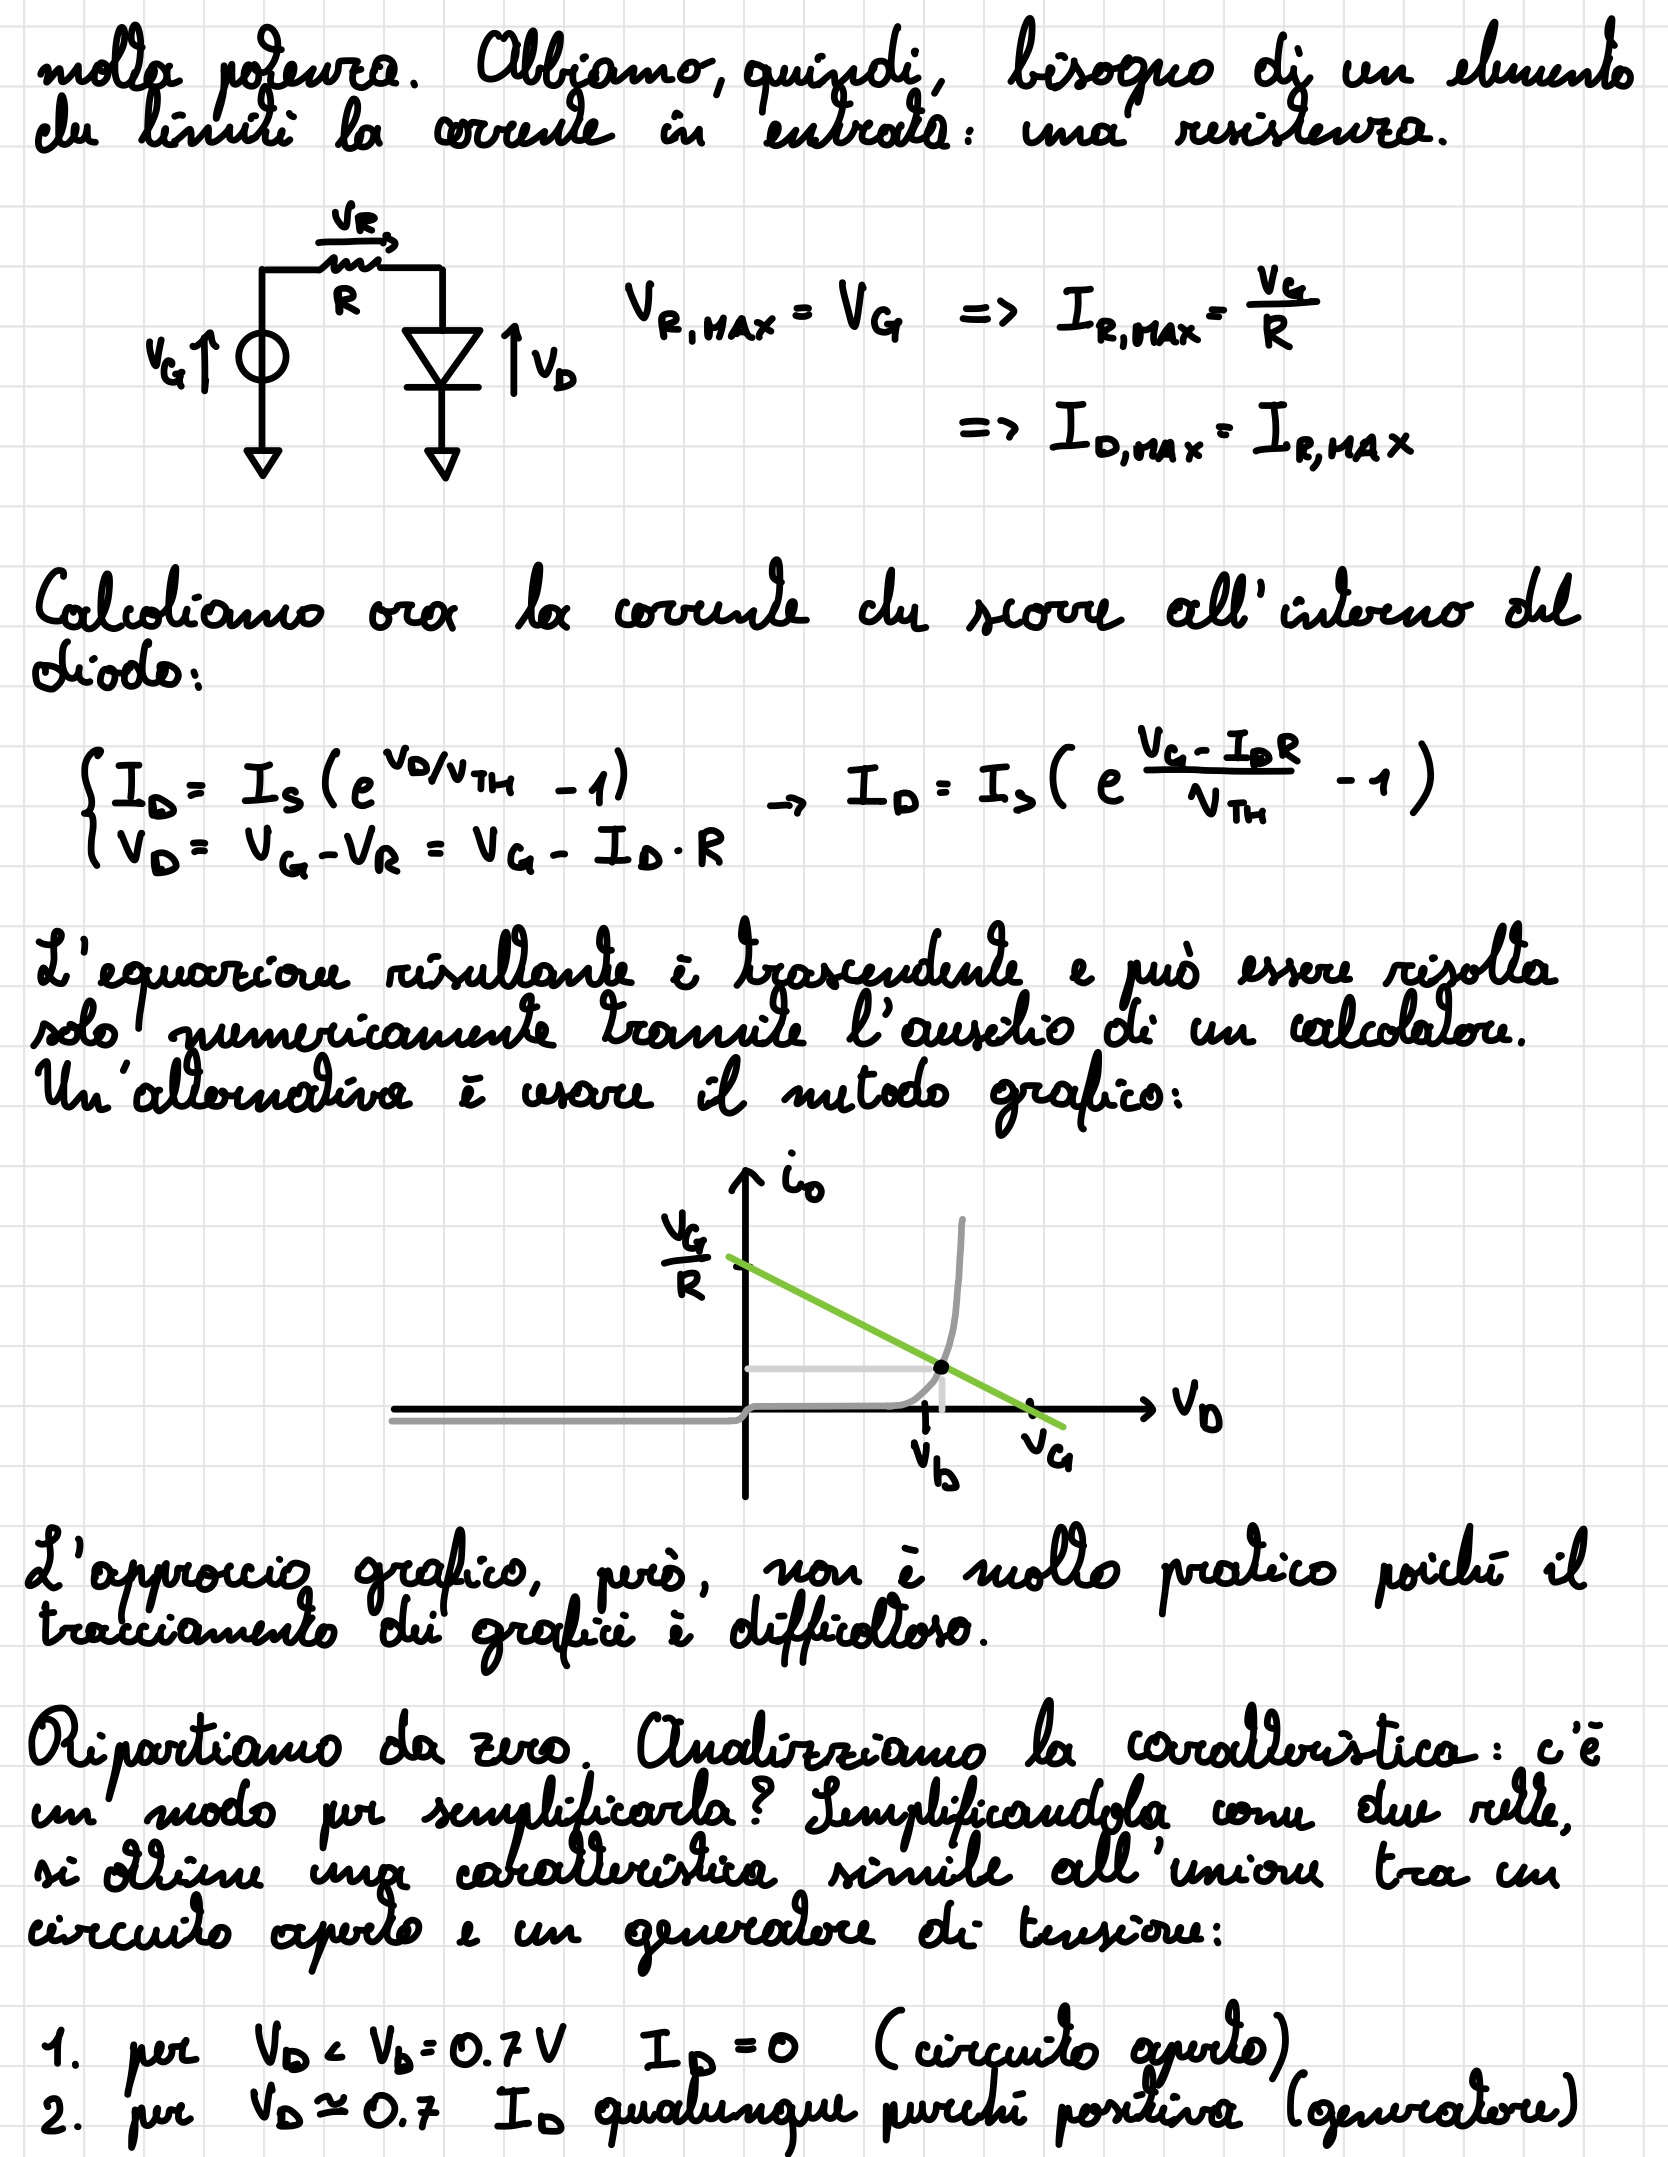 molta potenza. Abbiamo, quindi, bisogno di un elemento
che limiti la corrente in entrata: una resistenza.
V_R
R
V_G
V_D
V_{R,MAX} = V_G => I_{R,MAX} = V_G/R
=> I_{D,MAX} = I_{R,MAX}
Calcoliamo ora la corrente che scorre all'interno del
diodo:
{ I_D = I_S (e^{V_D/V_TH} - 1) → I_D = I_S (e^{(V_G - I_D R)/V_TH} - 1)
V_D = V_G - V_R = V_G - I_D · R
L'equazione risultante è trascendente e può essere risolta
solo numericamente tramite l'ausilio di un calcolatore.
Un'alternativa è usare il metodo grafico:
i_D
V_G/R
V_D
V_b
V_G
L'approccio grafico, però, non è molto pratico poiché il
tracciamento dei grafici è difficoltoso.
Ripartiamo da zero. Analizziamo la caratteristica: c'è
un modo per semplificarla? Semplificandola come due rette,
si ottiene una caratteristica simile all'unione tra un
circuito aperto e un generatore di tensione:
1. per V_D < V_b = 0.7 V I_D = 0 (circuito aperto)
2. per V_D ≃ 0.7 I_D qualunque purché positiva (generatore)